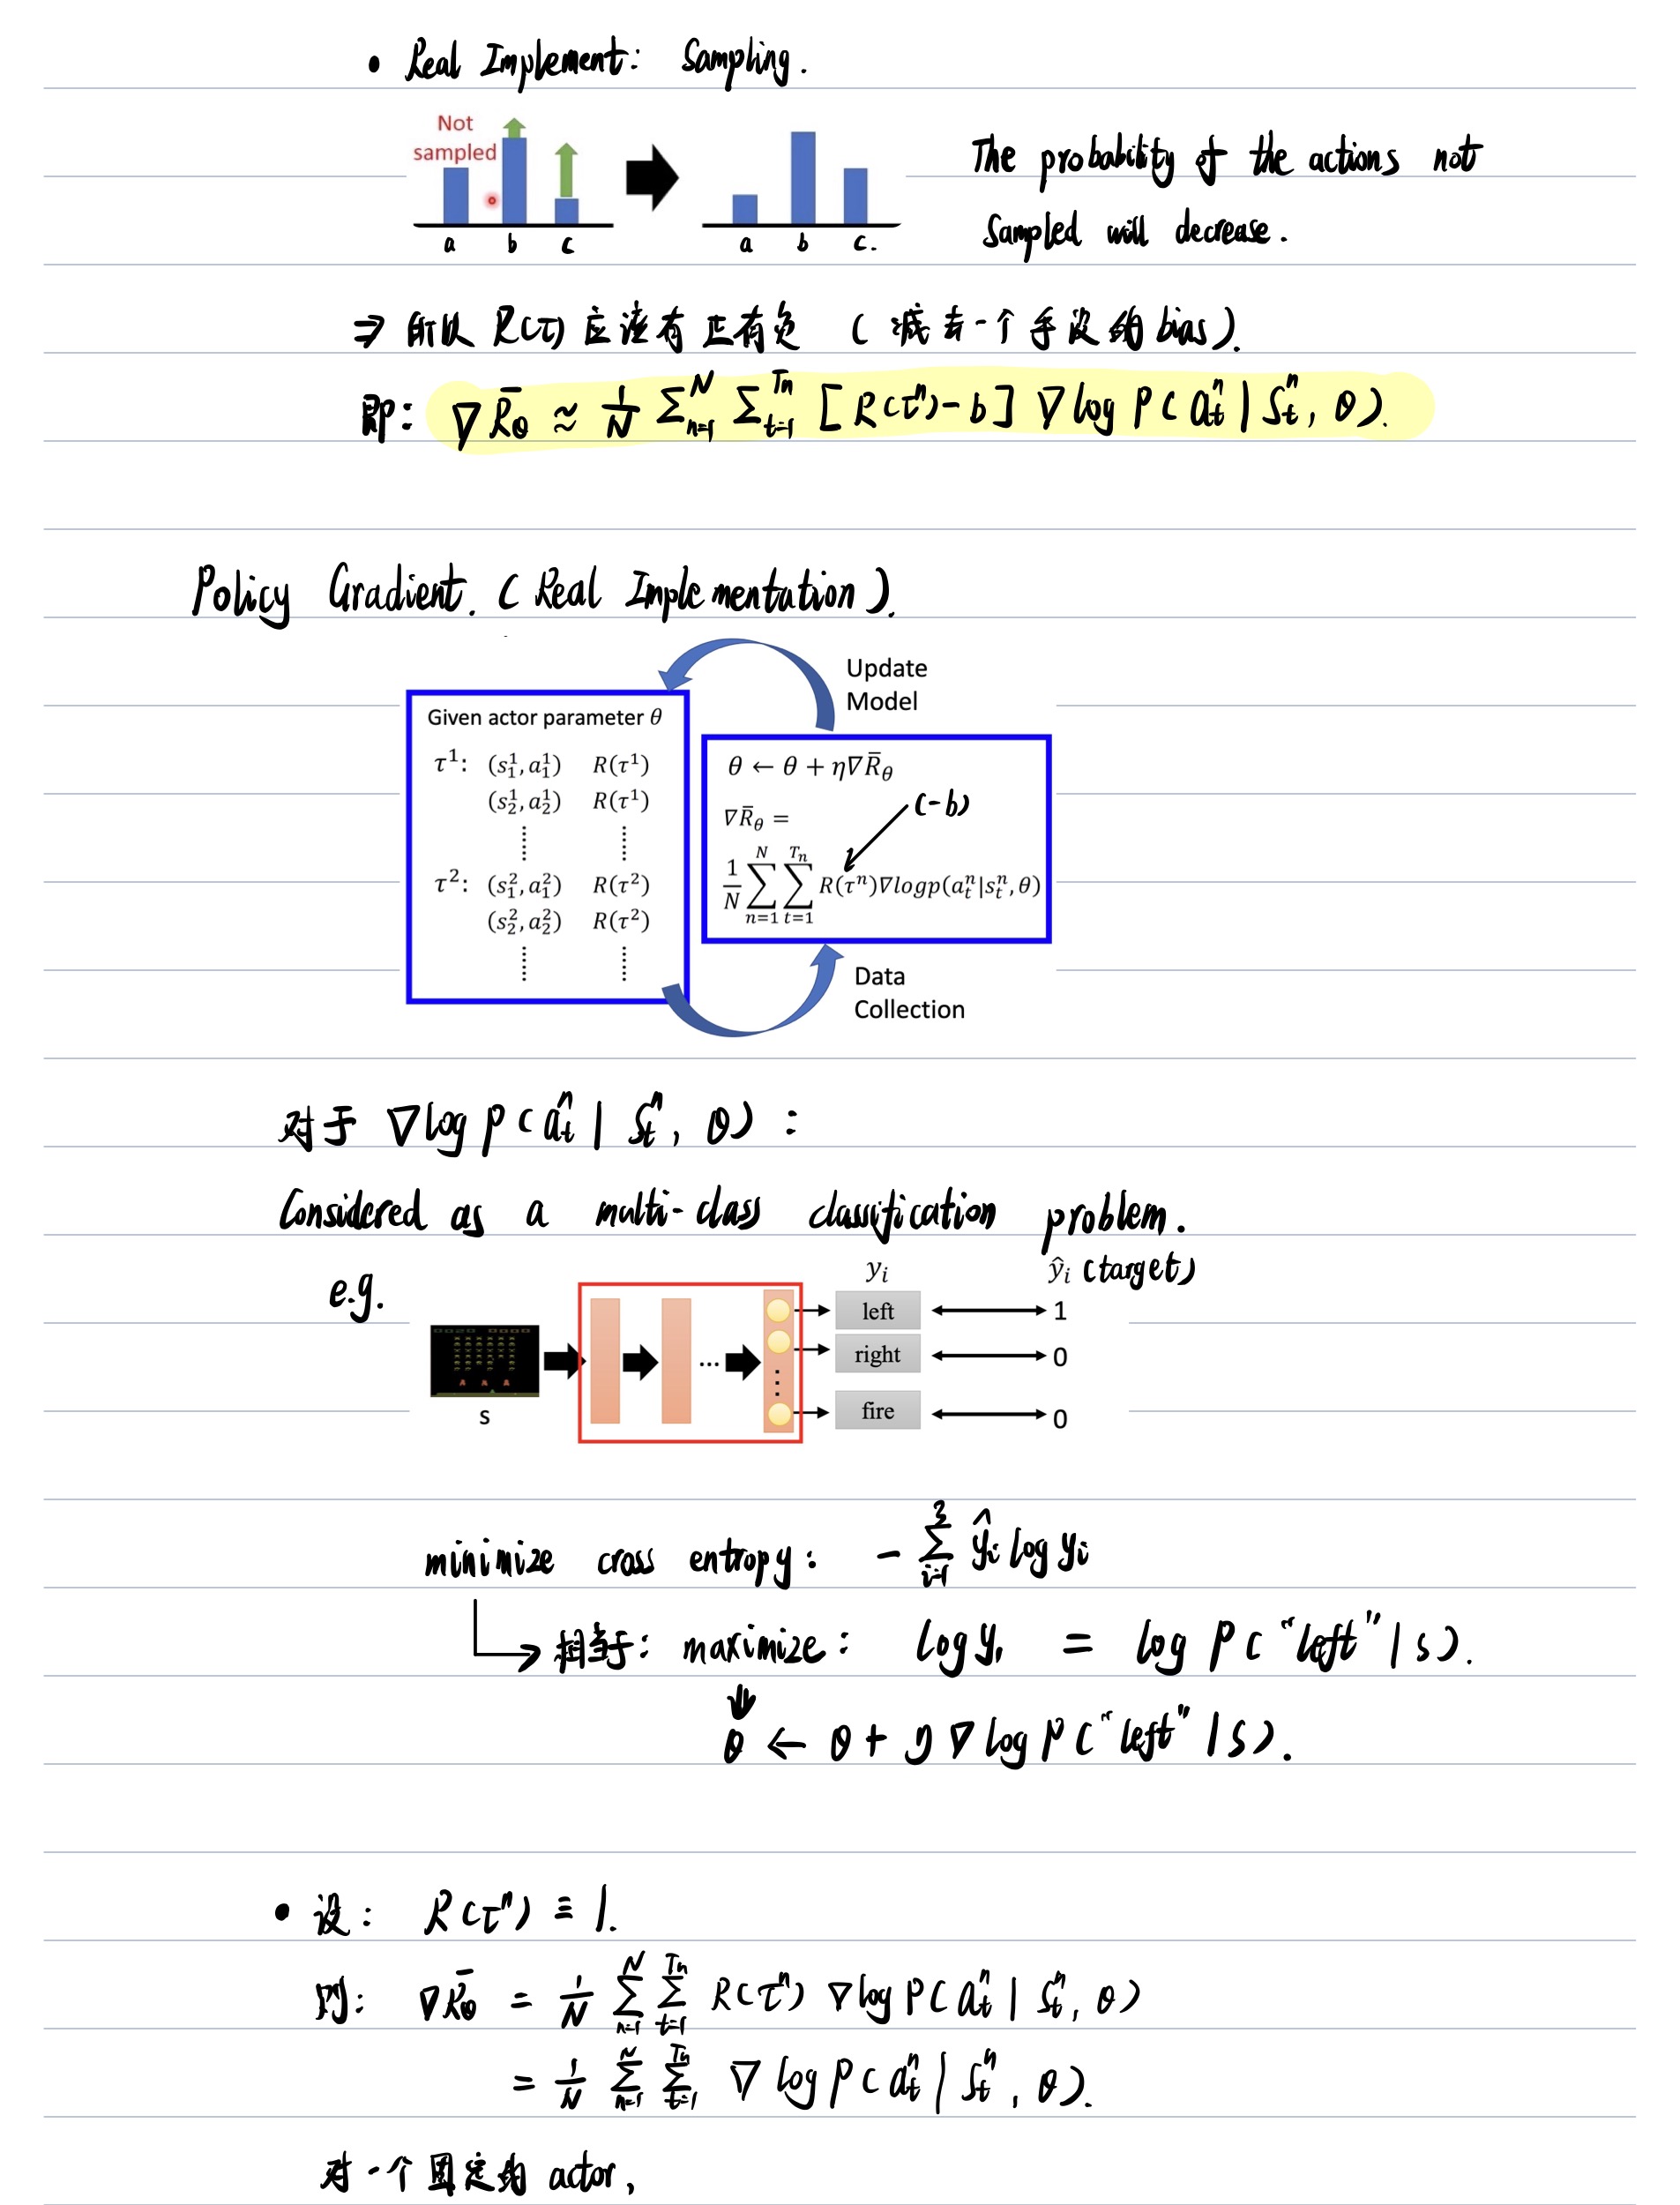 • Real Implement: Sampling.
Not
sampled
a b c
a b c.
The probability of the actions not
sampled will decrease.
⇒ 所以 R(τ) 应该有正有负 (减去一个手设的bias).
即: ∇R̄θ ≈ 1/N Σ_{n=1}^{N} Σ_{t=1}^{Tn} [R(τⁿ)-b] ∇log P(a_t^n | s_t^n, θ).
Policy Gradient. (Real Implementation).
Update
Model
Given actor parameter θ
τ¹: (s_1^1, a_1^1) R(τ¹)
(s_2^1, a_2^1) R(τ¹)
⋮ ⋮
τ²: (s_1^2, a_1^2) R(τ²)
(s_2^2, a_2^2) R(τ²)
⋮ ⋮
θ ← θ + η∇R̄θ
(-b)
∇R̄θ =
1/N Σ_{n=1}^{N} Σ_{t=1}^{Tn} R(τⁿ)∇logp(a_t^n|s_t^n, θ)
Data
Collection
对于 ∇log P(a_t^n | s_t^n, θ) :
Considered as a multi-class classification problem.
e.g.
y_i ŷ_i (target)
left 1
right 0
... ⋮
fire 0
s
minimize cross entropy: - Σ_{i=1}^{3} ŷ_i log y_i
相当于: maximize: log y_1 = log P("left" | s).
⇓
θ ← θ + η ∇ log P("left" | s).
• 设: R(τⁿ) ≡ 1.
则: ∇R̄θ = 1/N Σ_{n=1}^{N} Σ_{t=1}^{Tn} R(τⁿ) ∇log P(a_t^n | s_t^n, θ)
= 1/N Σ_{n=1}^{N} Σ_{t=1}^{Tn} ∇ log P(a_t^n | s_t^n, θ).
对一个固定的 actor,